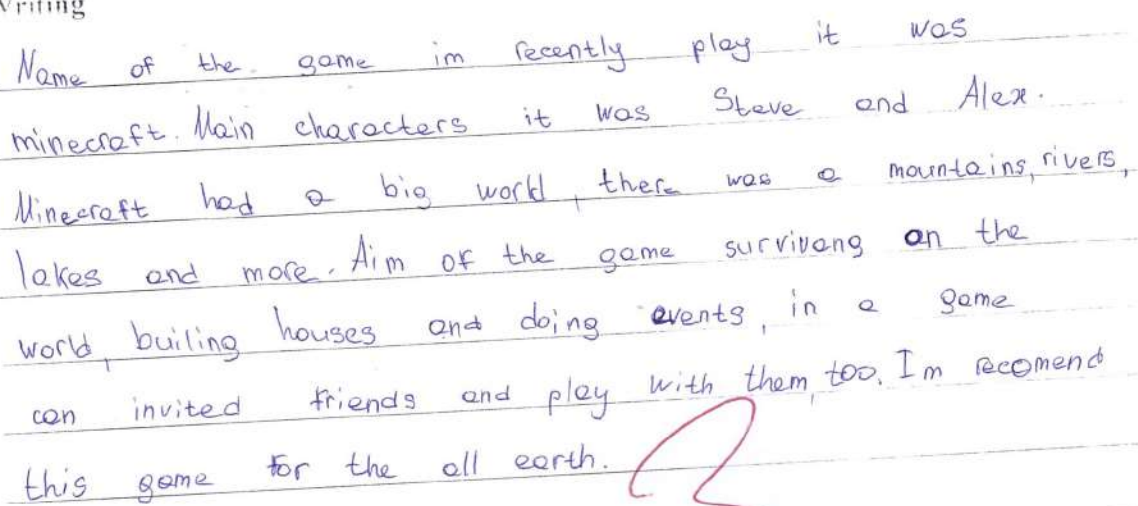 Writing
Name of the game im recently play it was
minecraft. Main characters it was Steve and Alex.
Minecraft had a big world, there was a mountains, rivers,
lakes and more. Aim of the game survivang on the
world, builing houses and doing events, in a game
can invited friends and play with them, too. Im recomend
this game for the all earth.